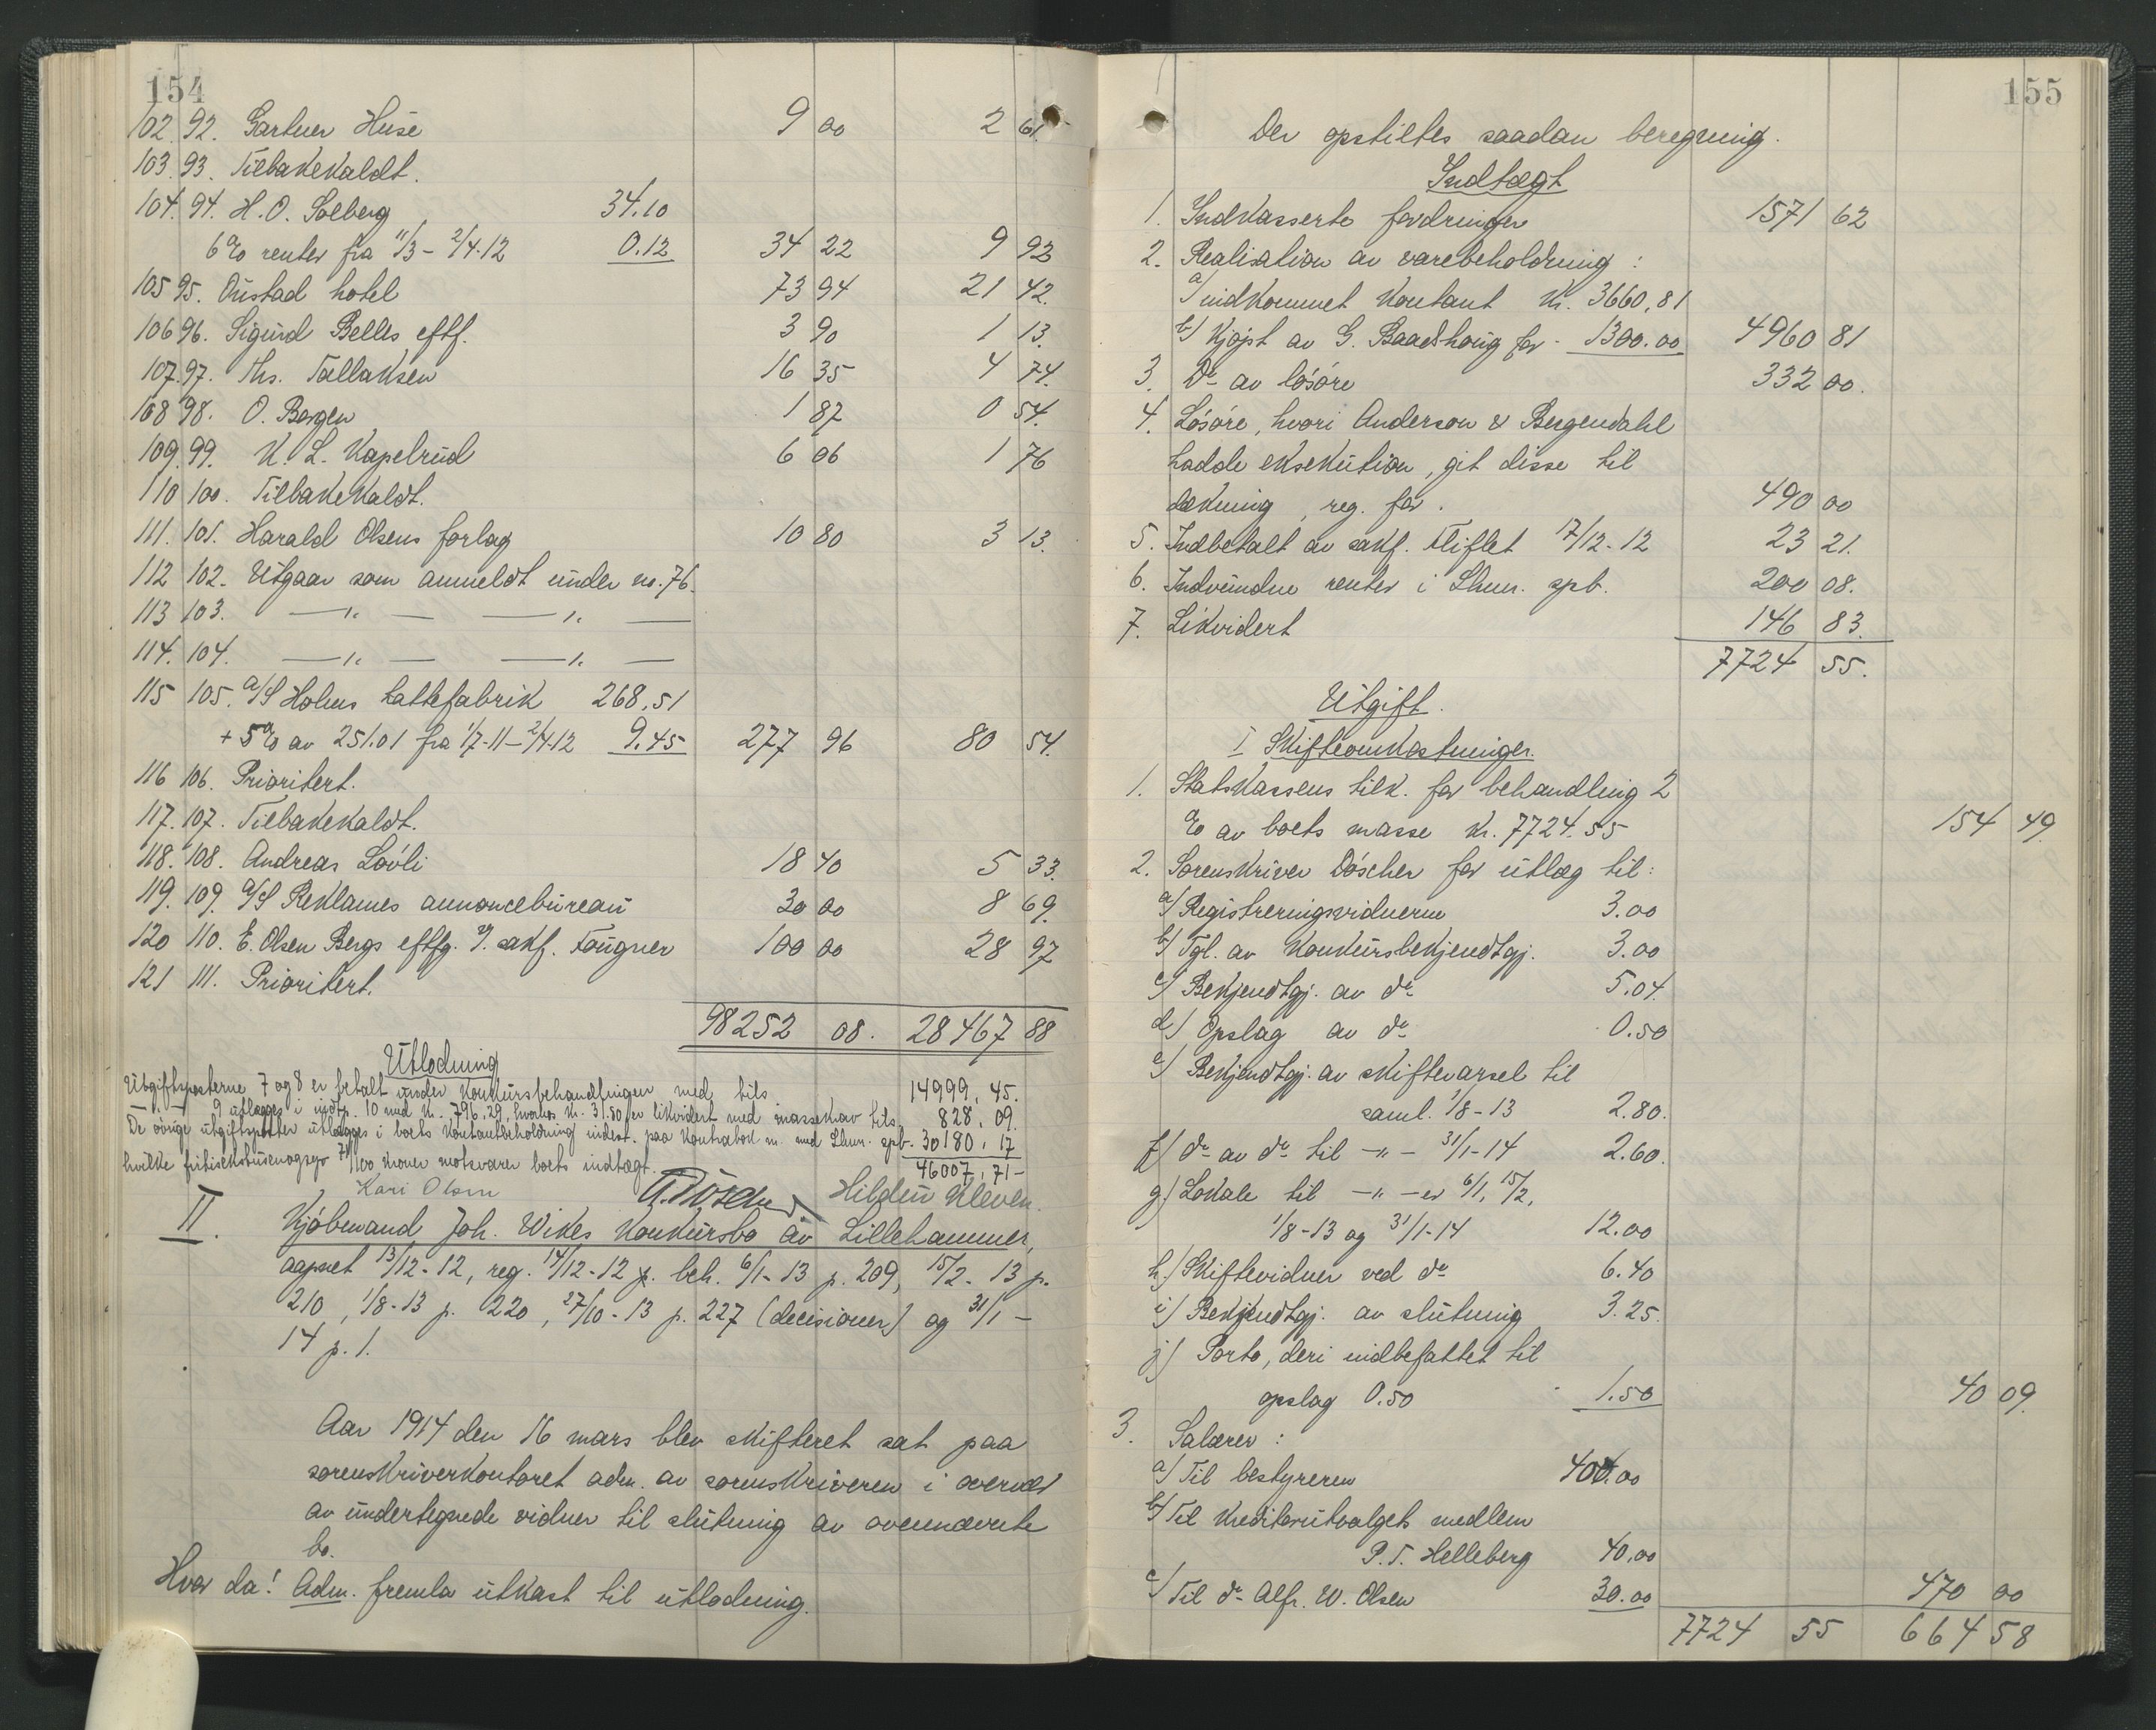 154
102 92. Gartner Huse 9 00 2 61.
103. 93. Tilbakekaldt.
104. 94. H. O. Solberg 34.10
6 % renter fra 11/3 - 2/4.12 0.12 34 22 9 92
105 95. Oustad hotel 73 94 21 42.
106 96. Sigurd Belles eftf. 3 90 1 13.
107. 97. Ths. Tallaksen 16 35 4 74.
108 98. O. Bergen 1 87 0 54.
109. 99. K. L. Kapelrud 6 06 1 76
110 100. Tilbakekaldt.
111. 101. Harald Olsens forlag 10 80 3 13.
112 102. Utgaar som anmeldt under no. 76.
113 103. — " — — " —
114. 104. — " — — " —
115 105. A/S Holms hattefabrik 268,51
+ 5 % av 251.01 fra 1/7-11 - 2/4-12 9.45 277 96 80 54.
116 106. Prioritert.
117. 107. Tilbakekaldt.
118. 108. Andreas Lövli 18 40 5 33.
119. 109. A/S Reklames annoncebureau 30 00 8 69.
120 110. E. Olsen Bergs eftfg. v. sakf. Fougner 100 00 28 97
121 111. Prioritert.
98252 08. 28467 88
Utlodning
Utgiftsposterne 7 og 8 er betalt under konkursbehandlingen med tils 14999, 45.
— " — 9 utlægges i indtp. 10 med kr. 796,29, hvorhos kr. 31.80 er likvidert med massekrav tils. 828, 09.
De övrige utgiftsposter utlægges i boets kontantbeholdning indest. paa kontrabok m. med Lhmr. spb. 30180, 17
hvilke firtisekstusenogsyv 71/100 kroner motsvarer boets indtægt. 46007, 71 -
Kari Olsen A. Döscher Hilden Kleven.
II. Kjöbmand Joh. Wikes konkursbo av Lillehammer,
aapnet 13/12-12, reg. 14/12-12 p. beh. 6/1-13 p. 209, 15/2-13 p.
210, 1/8-13 p. 220, 27/10-13 p. 227 (decisioner) og 31/1 -
14 p. 1.
Aar 1914 den 16 mars blev skifteret sat paa
sorenskriverkontoret adm. av sorenskriveren i overvær
av undertegnede vidner til slutning av ovennævnte
bo.
Hvor da! Adm. fremla utkast til utlodning.
155
Der opstiltes saadan beregning.
Indtægt
1. Indkasserte fordringer 1571 62
2. Realisation av varebeholdning :
a/ indkommet kontant kr. 3660,81
b/ Kjøpt av G. Baadshaug for - 1300.00 4960 81
3. Do av lösöre 332 00.
4. Lösöre, hvori Anderson & Bergendahl
hadde eksekution, git disse til
dækning, reg. for . 490 00
5. Indbetalt av sakf. Fliflet 17/12-12 23 21.
6. Indvundne renter i Lhmr. spb. 200 08.
7. Likvidert 146 83.
7724 55.
Utgift.
I Skifteomkostninger.
1. Statskassens tilk. for behandling 2
% av boets masse kr. 7724.55 154 49.
2. Sorenskriver Döscher for utlæg til:
a/ Registreringsvidnerne 3.00
b/ Tgl. av konkursbekjendtgj. 3.00
c/ Bekjendtgj. av do 5.04.
d/ Opslag av do 0.50
e/ Bekjendtgj. av skiftevarsel til
saml. 1/8-13 2.80.
f/ do av do til - " - 31/1-14 2.60.
g/ Lokale til - " - er 6/1, 15/2,
1/8-13 og 31/1-14 12.00
h/ Skiftevidner ved do 6.40
i/ Bekjendtgj. av slutning 3.25.
j/ Porto, deri indbefattet til
opslag 0.50 1.50 40 09.
3. Salærer :
a/ Til bestyreren 400.00
b/ Til kreditorutvalgets medlem
P. T. Helleberg 40.00
c/ Til do Alfr. W. Olsen 30.00 470 00
7724 55 664 58